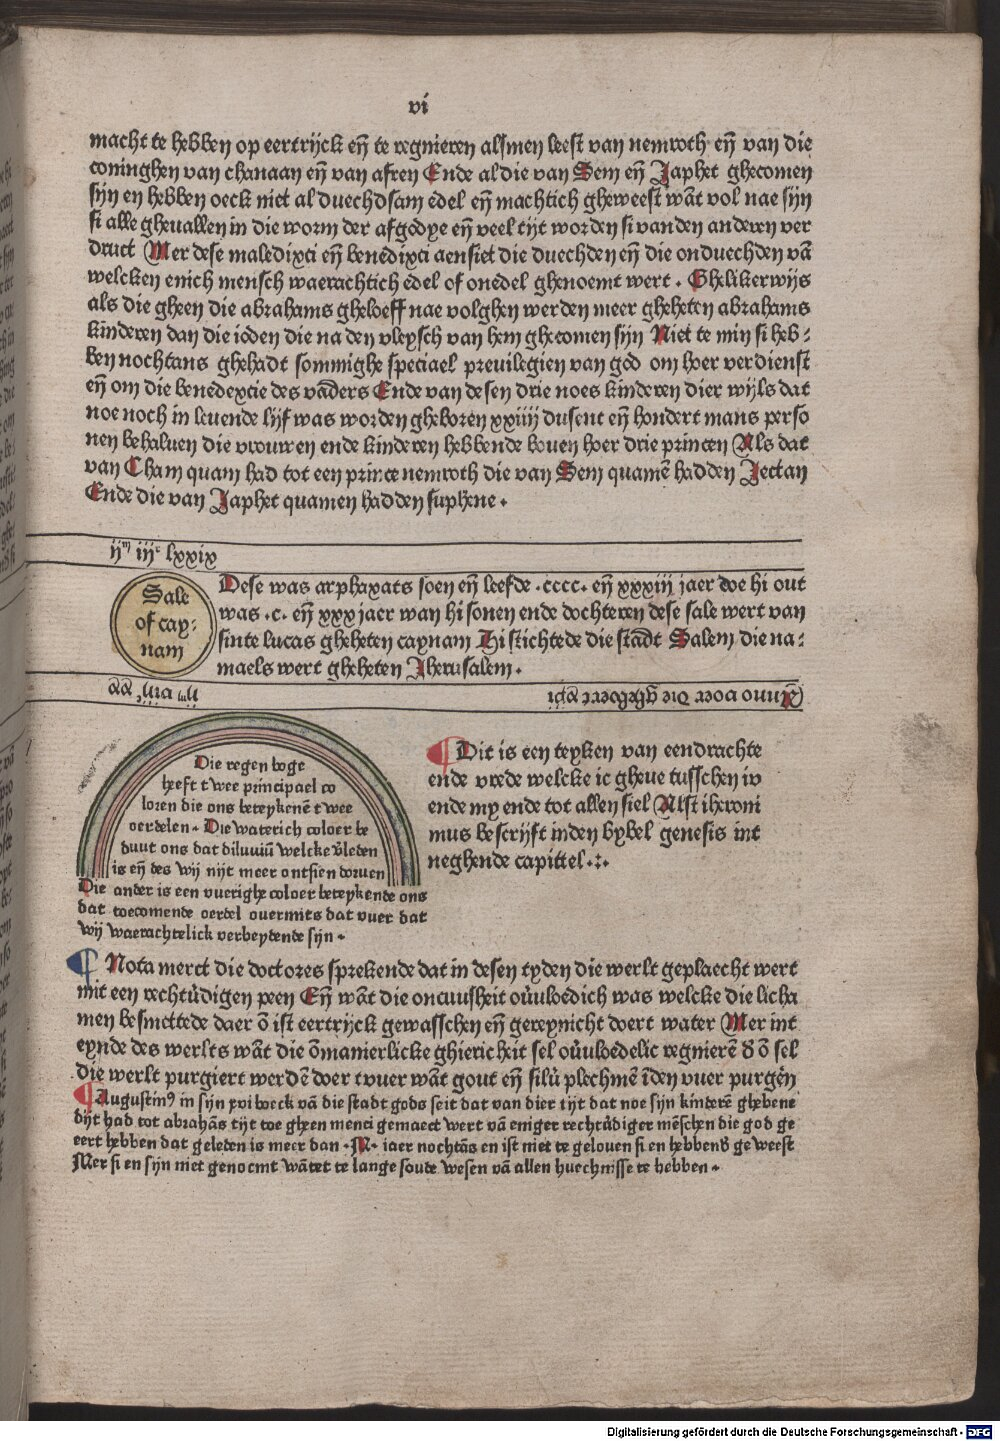 vi
macht te hebben op eertrijck eñ te regnieren alsmen leest van nemroth eñ van die
coninghen van chanaan eñ van afren Ende al die van Sem eñ Japhet ghecomen
sijn en hebben oeck niet al duechdsam edel eñ machtich gheweest wāt vol nae sijn
si alle gheuallen in die worm der afgodye eñ veel tijt worden si van den anderen ver
druct Mer dese maledixci eñ benedixci aensiet die duechden eñ die onduechden vā
welcken enich mensch waerachtich edel of onedel ghenoemt wert . Ghelikerwijs
als die gheen die abrahams gheloeff nae volghen werden meer gheheten abrahams
kinderen dan die ioden die na den vleysch van hem ghecomen sijn Niet te min si heb-
ben nochtans ghehadt sommighe speciael preuilegien van god om hoer verdienst
eñ om die benedexcie des vāders Ende van desen drie noes kinderen dier wijls dat
noe noch in leuende lijf was worden gheboren xxiiij dusent eñ hondert mans perso
nen behaluen die vrouwen ende kinderen hebbende bouen hoer drie princen Als dat
van Cham quam had tot een prince nemroth die van Sem quamē hadden Jectan
Ende die van Japhet quamen hadden suphene .
ijm iijc lxxix
Sale
of cay-
nam
Dese was arphaxats soen eñ leefde .cccc. eñ xxxiij jaer doe hi out
was .c. eñ xxx jaer wan hi sonen ende dochteren dese sale wert van
sinte lucas gheheten caynam Hi stichtede die stadt Salem die na-
maels wert gheheten Jherusalem .
Anno voer die gheboert
Die regen boge
heeft twee principael co
loren die ons beteykenē twee
oerdelen . Die waterich coloer be
duut ons dat diluuiū welcke v̄leden
is eñ des wij nijt meer ontsien doruen
Die ander is een vuerighe coloer beteykende ons
dat toecomende oerdel ouermits dat vuer dat
wij waerachtelick verbeydende sijn .
¶ Dit is een teyken van eendrachte
ende vrede welcke ic gheue tusschen iv
ende my ende tot allen siel Alst iheroni
mus bescrijft inden bybel genesis int
neghende capittel .:.
¶ Nota merct die doctores sprekende dat in desen tyden die werlt geplaecht wert
mit een rechtūdigen peen Eñ wāt die oncuusheit oūuloedich was welcke die licha
men besmettede daer ō ist eertrijck gewasschen eñ gereynicht doert water Mer int
eynde des werlts wāt die ōmanierlicke ghiericheit sel oūuloedelic regnierē d̄ ō sel
die werlt purgiert werdē doer tvuer wāt gout eñ silū plechmē īden vuer purgēn
¶ Augustinꝰ in sijn xvi boeck vā die stadt gods seit dat van dier tijt dat noe sijn kinderē ghebene
dijt had tot abrahās tijt toe gheen menci gemaect wert vā eniger rechtūdiger mēschen die god ge
eert hebben dat geleden is meer dan .M. iaer nochtās en ist niet te gelouen si en hebbend geweest
Mer si en sijn niet genoemt wātet te lange soude wesen vā allen huechnisse te hebben .
Digitalisierung gefördert durch die Deutsche Forschungsgemeinschaft - DFG